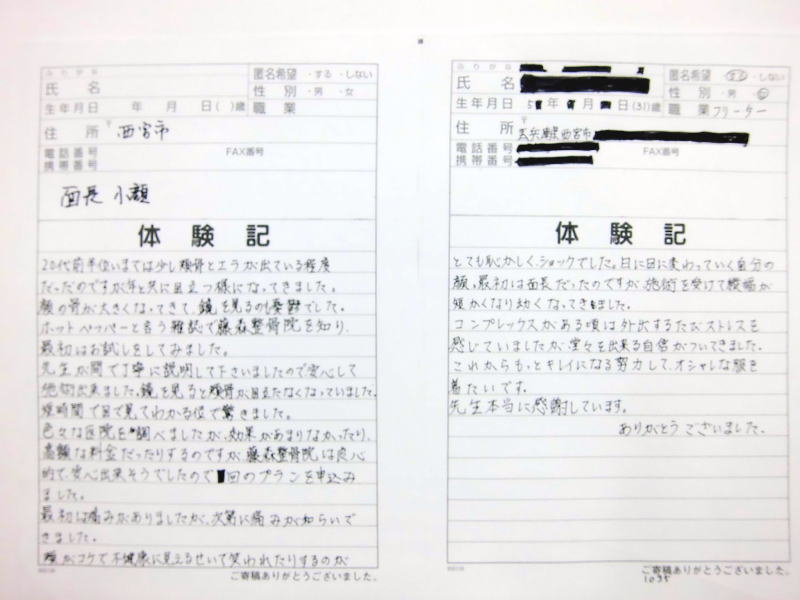 ふりがな
氏 名
匿名希望 ・する ・しない
性 別 ・男 ・女
生年月日 年 月 日( )歳
職 業
住 所 〒 西宮市
電話番号 FAX番号
携帯番号
面長 小顔
体験記
20代前半位いまでは少し頬骨とエラが出ている程度
だったのですが年と共に目立つ様になってきました。
顔の骨が大きくなってきて、鏡を見るのも憂鬱でした。
ホットペッパーと言う雑誌で藤森整骨院を知り、
最初はお試しをしてみました。
先生が間で丁寧に説明して下さいましたので安心して
施術出来ました。鏡を見ると頬骨が目立たなくなっていました。
短時間で目で見てわかる位で驚きました。
色々な医院を調べましたが、効果があまりなかったり、
高額な料金だったりするのですが、藤森整骨院は良心
的で、安心出来そうでしたので 回のプランを申込み
ました。
最初は痛みがありましたが、次第に痛みが和らいで
きました。
頬がコケて不健康に見えるせいで笑われたりするのが
ご寄稿ありがとうございました。
ふりがな
氏 名
匿名希望 ・する ・しない
性 別 ・男 ・女
生年月日 5 年 月 日(31)歳
職 業 フリーター
住 所 〒 兵庫県西宮市
電話番号 FAX番号
携帯番号
体験記
とても恥かしく、ショックでした。日に日に変わっていく自分の
顔、最初は面長だったのですが、施術を受けて縦幅が
短かくなり幼くなってきました。
コンプレックスがある頃は外出するたびストレスを
感じていましたが、堂々を出来る自信がついてきました。
これからもっとキレイになる努力して、オシャレな服を
着たいです。
先生本当に感謝しています。
ありがとうございました。
ご寄稿ありがとうございました。
1035